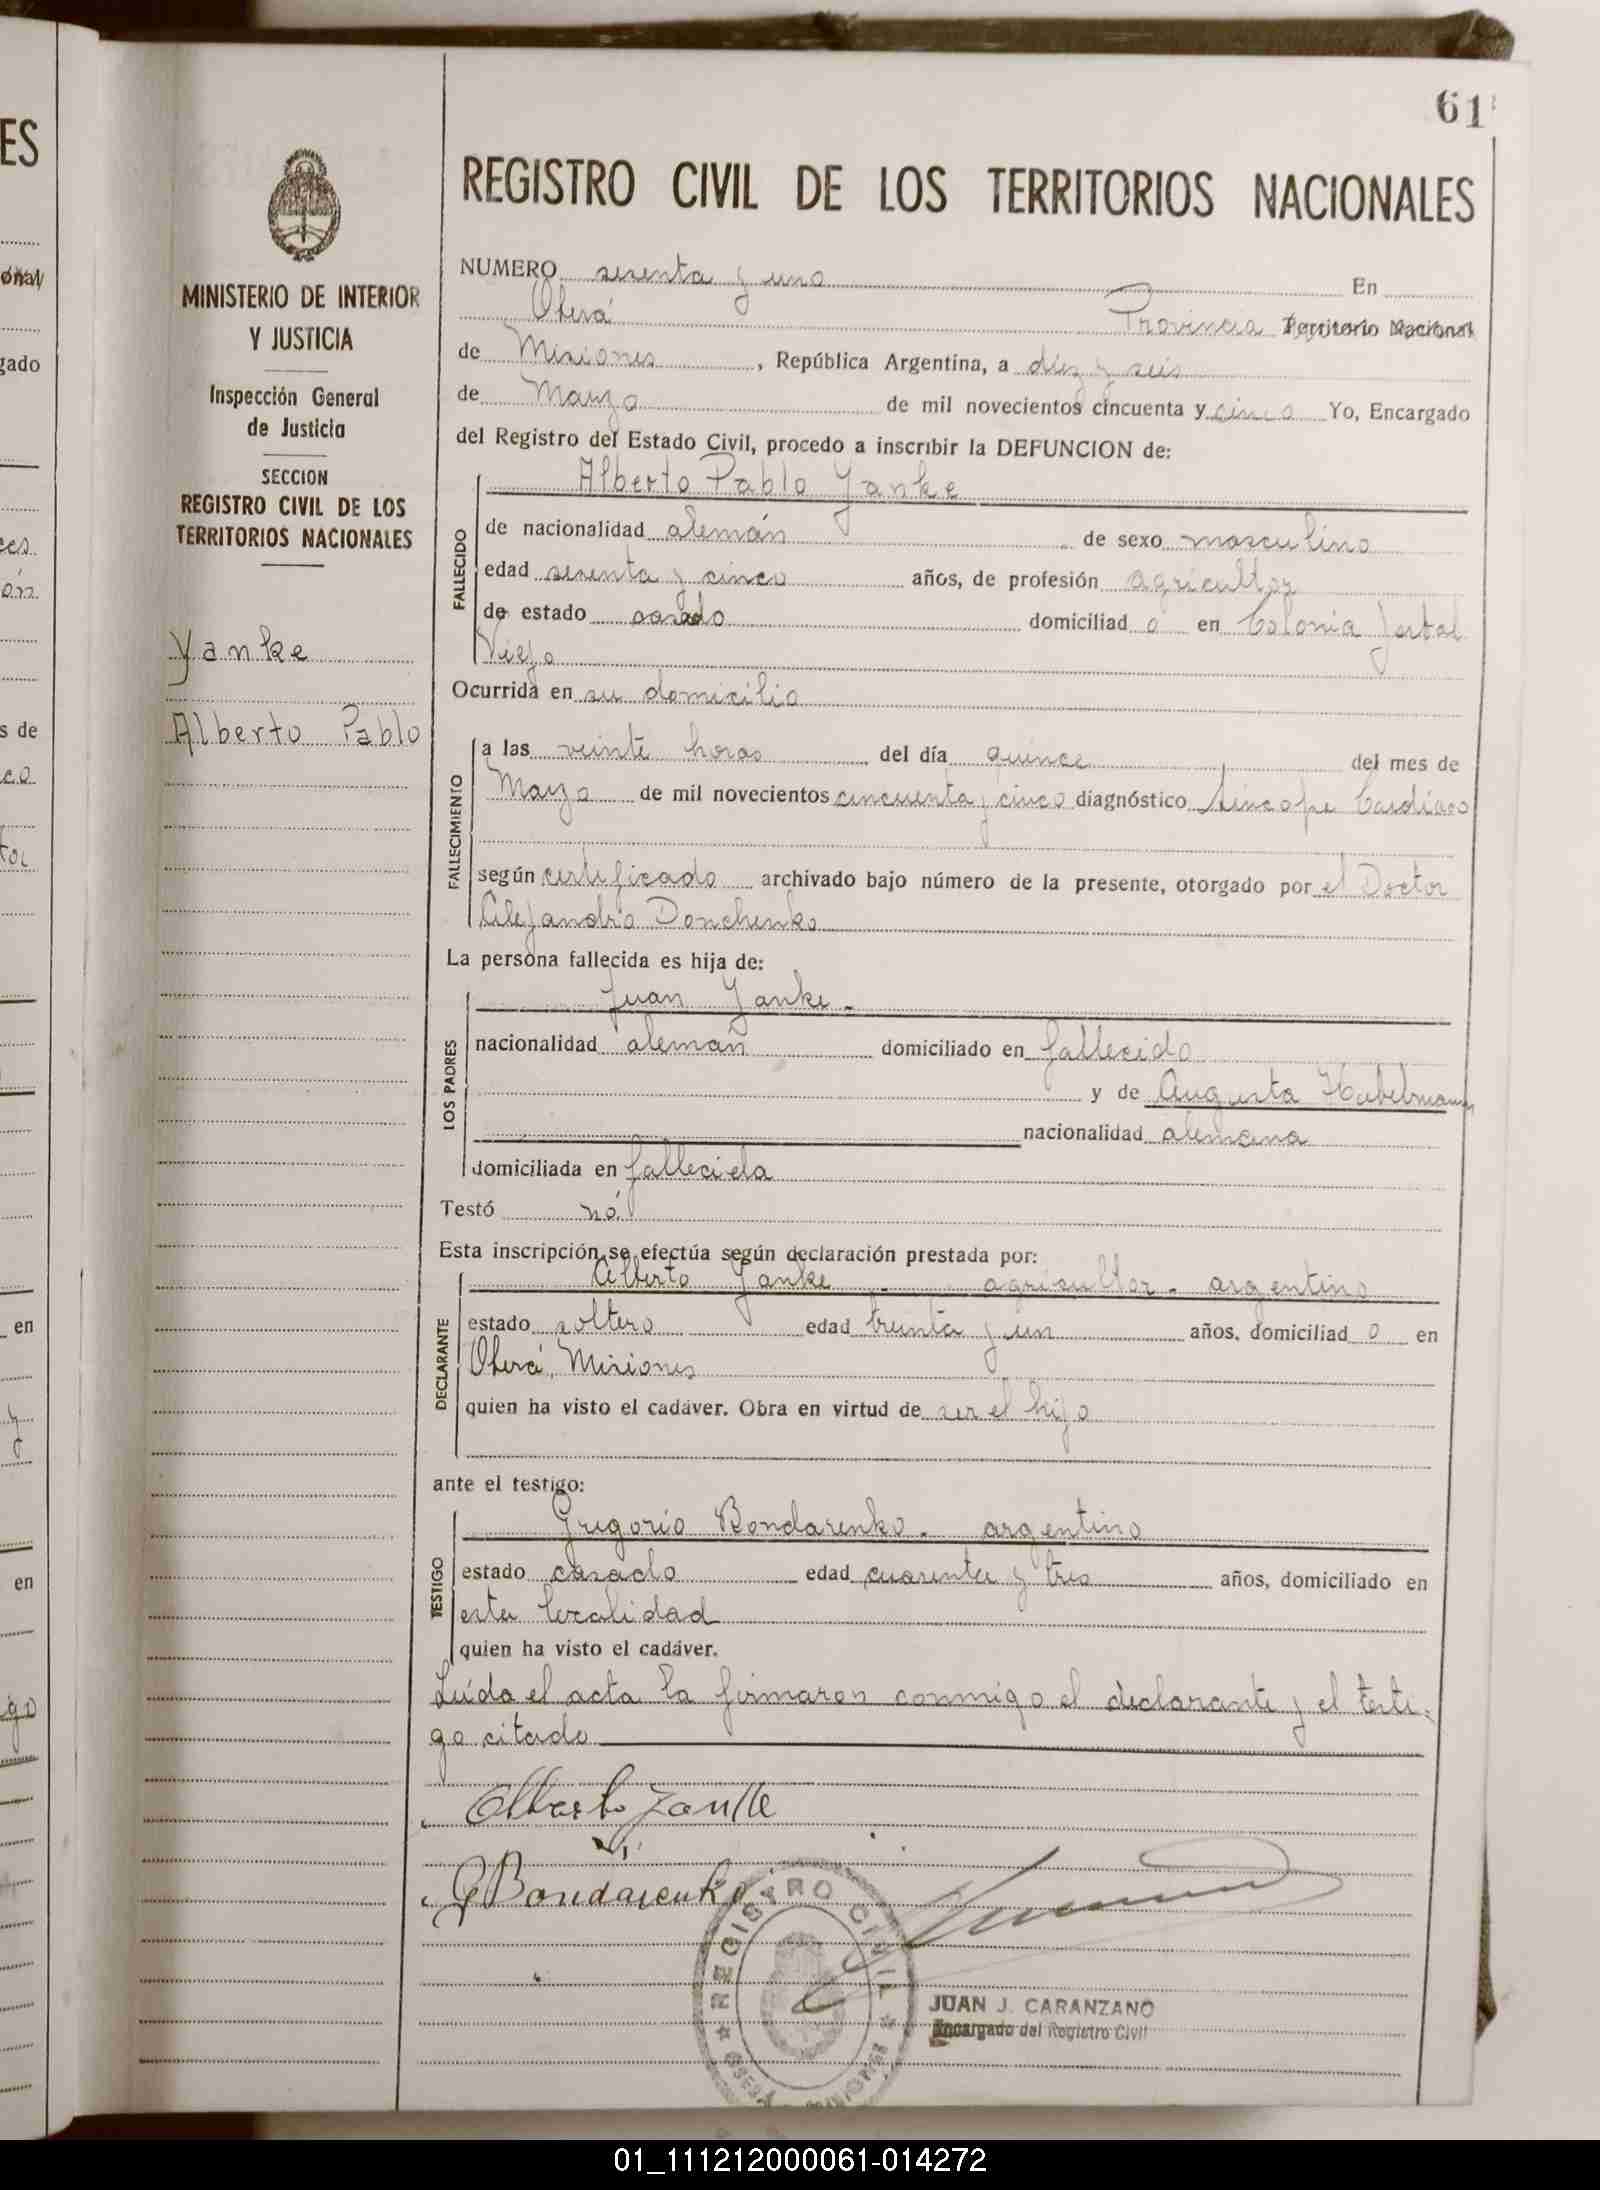 61
REGISTRO CIVIL DE LOS TERRITORIOS NACIONALES
MINISTERIO DE INTERIOR
Y JUSTICIA
Inspección General
de Justicia
SECCION
REGISTRO CIVIL DE LOS
TERRITORIOS NACIONALES
Yanke
Alberto Pablo
NUMERO sesenta y uno En
Oberá Provincia Territorio Nacional
de Misiones, República Argentina, a diez y seis
de Marzo de mil novecientos cincuenta y cinco Yo, Encargado
del Registro del Estado Civil, procedo a inscribir la DEFUNCION de:
Alberto Pablo Yanke
FALLECIDO
de nacionalidad alemán de sexo masculino
edad sesenta y cinco años, de profesión agricultor
de estado casado domiciliad o en Colonia Yerbal
Viejo
Ocurrida en su domicilio
FALLECIMIENTO
a las veinte horas del día quince del mes de
Marzo de mil novecientos cincuenta y cinco diagnóstico Síncope Cardíaco
según certificado archivado bajo número de la presente, otorgado por el Doctor
Alejandro Donchenko
La persona fallecida es hija de:
LOS PADRES
Juan Yanke.
nacionalidad alemán domiciliado en fallecido
y de Augusta
nacionalidad alemana
domiciliada en fallecida
Testó nó
Esta inscripción se efectúa según declaración prestada por:
DECLARANTE
Alberto Yanke agricultor. argentino
estado soltero edad treinta y un años, domiciliad o en
Oberá, Misiones
quien ha visto el cadáver. Obra en virtud de ser el hijo
ante el testigo:
TESTIGO
Gregorio Bondarenko. argentino
estado casado edad cuarenta y tres años, domiciliado en
esta localidad
quien ha visto el cadáver.
Leída el acta la firmaron conmigo el declarante y el testi-
go citado
Alberto Yanke
G Bondarenko
REGISTRO CIVIL
OBERA MISIONES
JUAN J. CARANZANO
Encargado del Registro Civil
01_111212000061-014272